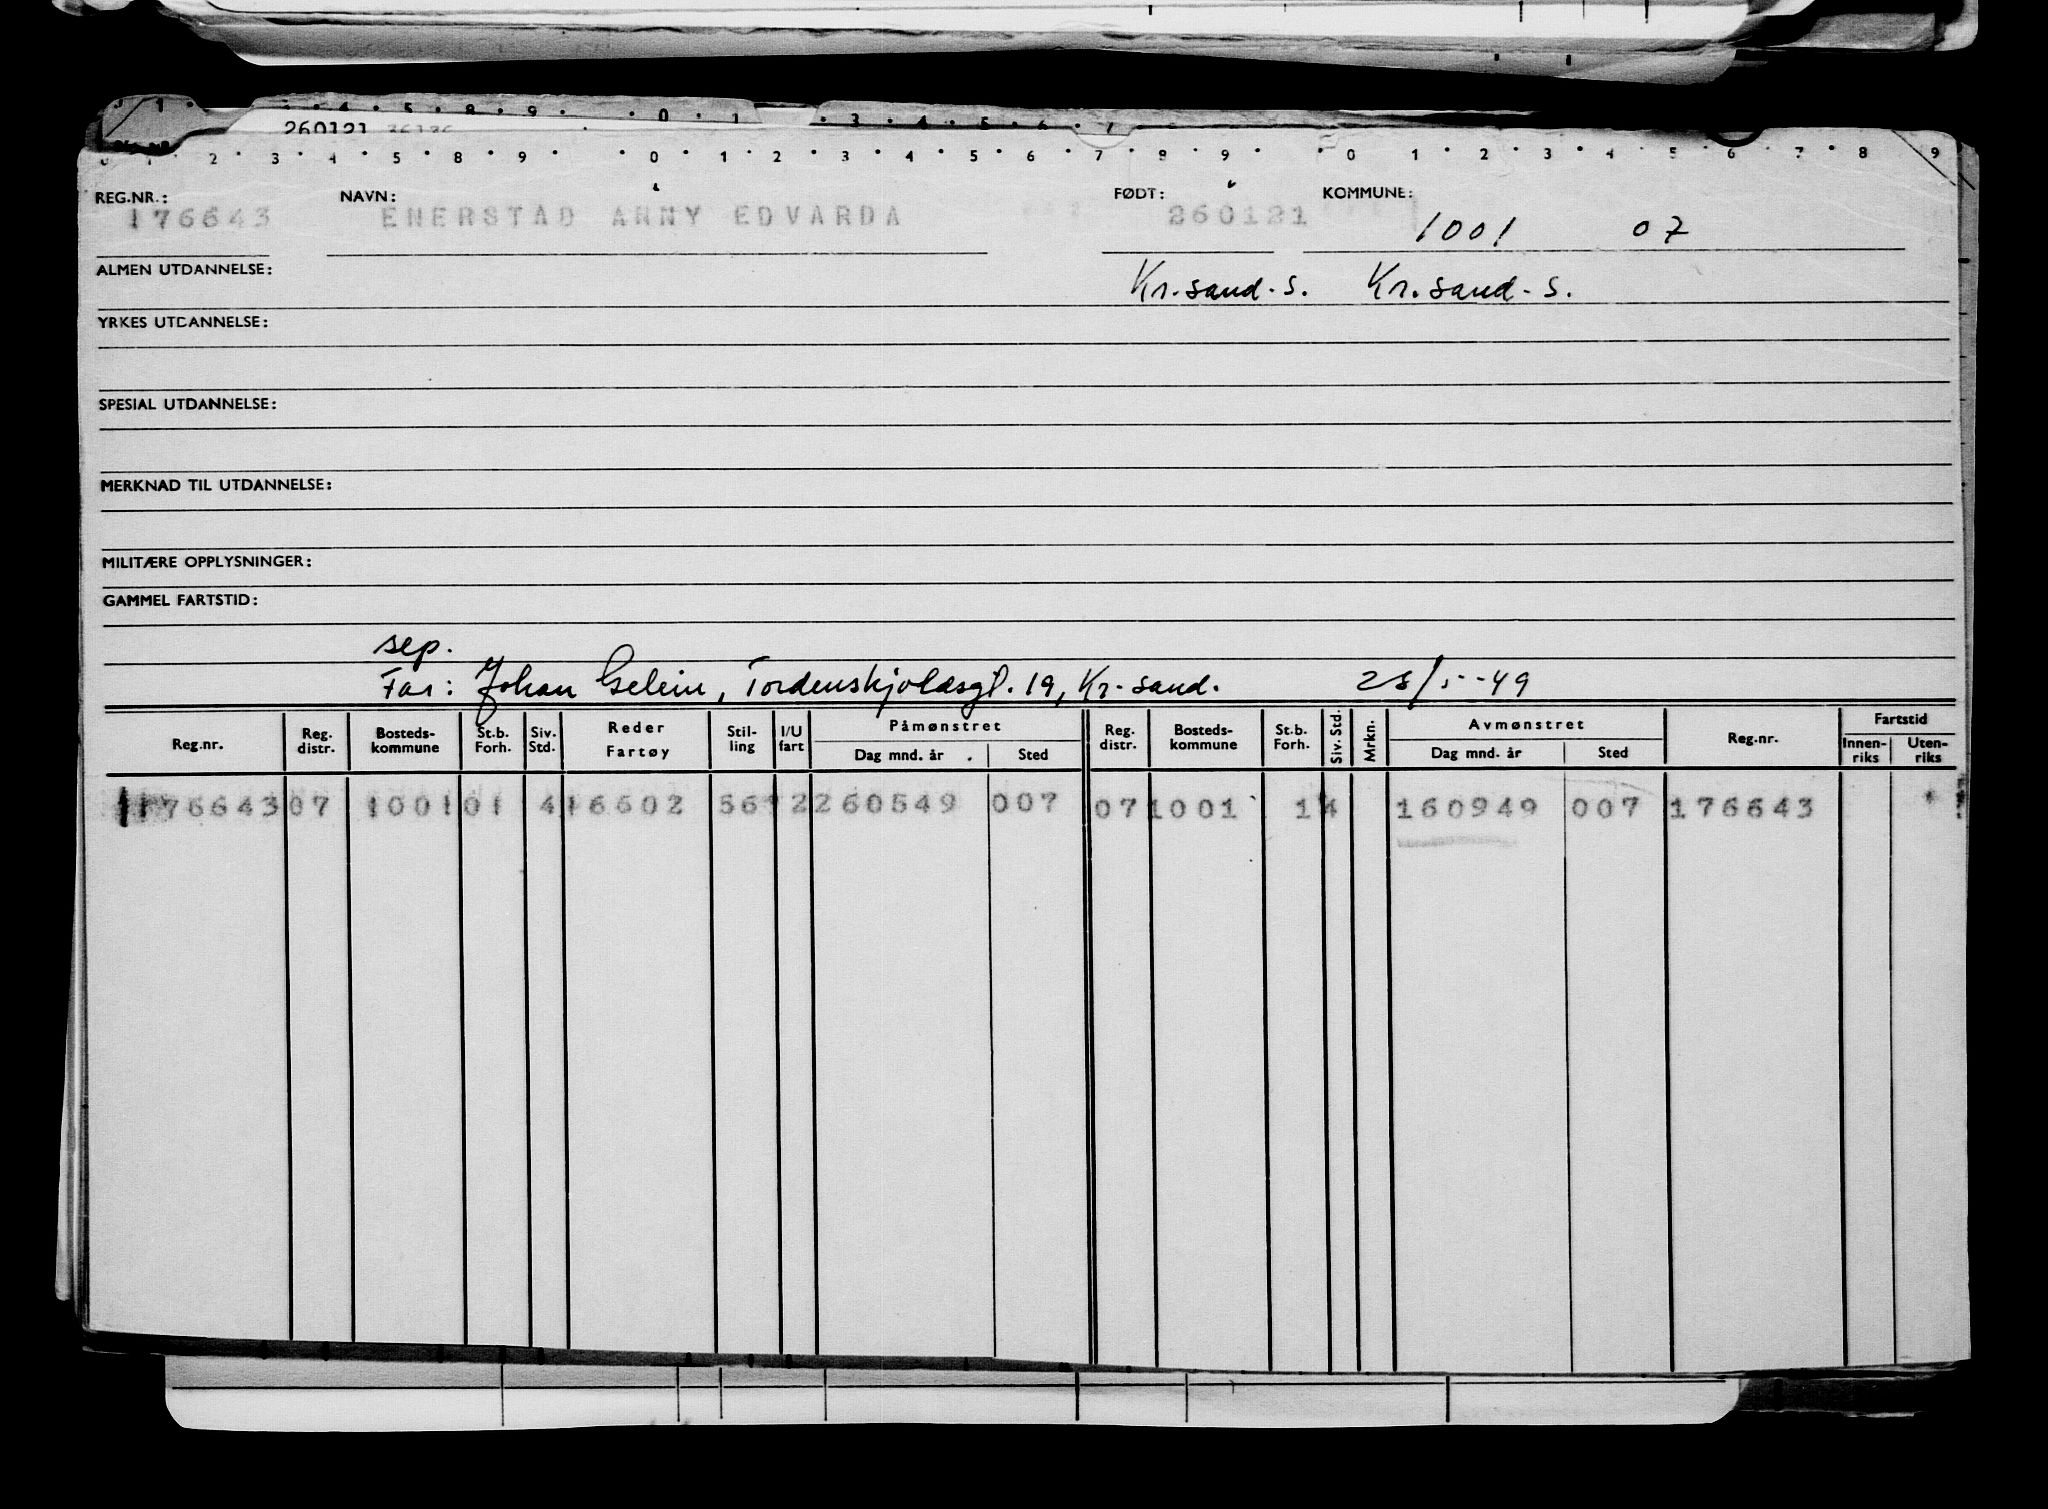 260121
0 1 2 3 4 5 8 9 0 1 2 3 4 5 6 7 8 9 0 1 2 3 4 5 6 7 8 9
REG.NR.: NAVN: FØDT: KOMMUNE:
176643 ENERSTAD ANNY EDVARDA 260121 1001 07
ALMEN UTDANNELSE: Kr.sand.s. Kr.sand.s.
YRKES UTDANNELSE:
SPESIAL UTDANNELSE:
MERKNAD TIL UTDANNELSE:
MILITÆRE OPPLYSNINGER:
GAMMEL FARTSTID:
sep.
Far: Johan Gelein, Tordenskjoldsgt. 19, Kr.sand. 28/5-49
Reg.nr. Reg. distr. Bosteds-kommune St.b. Forh. Siv. Std. Reder Fartøy Stil-ling I/U fart Påmønstret Dag mnd. år. Sted Reg. distr. Bosteds-kommune St.b. Forh. Siv. Std. Mrkn. Avmønstret Dag mnd. år Sted Reg.nr. Fartstid Innen-riks Uten-riks
176643 07 1001 01 4 16602 561 2 260549 007 07 1001 1 4 160949 007 176643